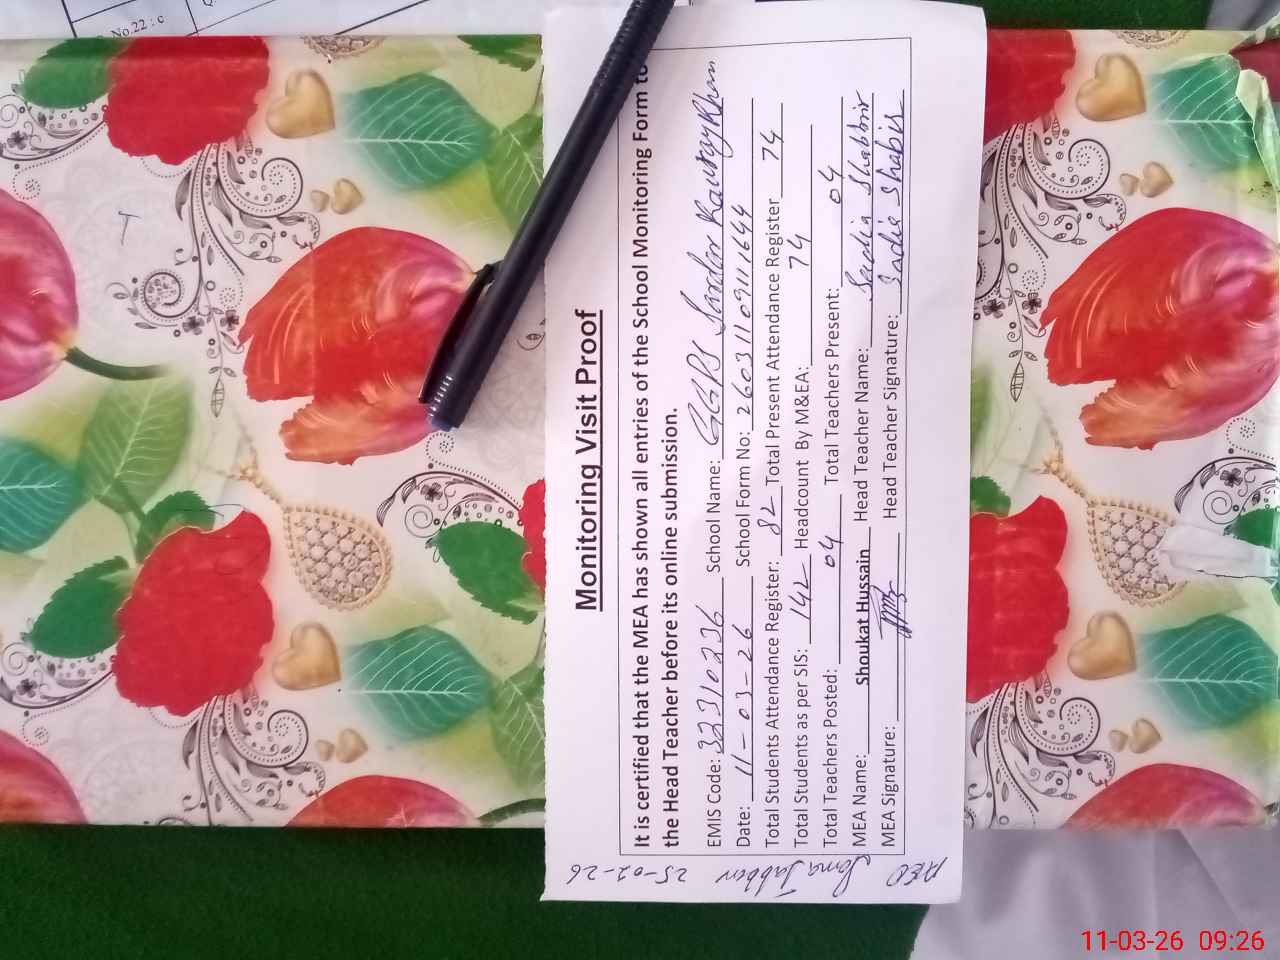 No.22 : c
Q.
T
Monitoring Visit Proof
It is certified that the MEA has shown all entries of the School Monitoring Form to
the Head Teacher before its online submission.
EMIS Code: 33310236 School Name: GGPS Sardar
Date: 11-03-26 School Form No: 260311091111644
Total Students Attendance Register: 82 Total Present Attendance Register 74
Total Students as per SIS: 142 Headcount By M&EA: 74
Total Teachers Posted: 04 Total Teachers Present: 04
MEA Name: Shoukat Hussain Head Teacher Name: Sadia Shabbir
MEA Signature: Head Teacher Signature: Sadia Shabir
25-02-26
AEO
11-03-26 09:26